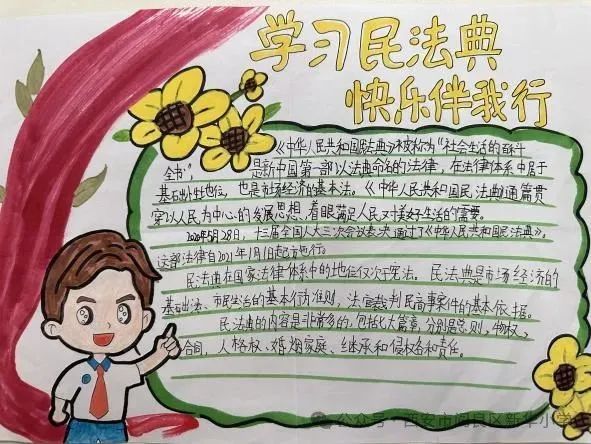 学习民法典
快乐伴我行
《中华人民共和国民法典》被称为“社会生活的百科
全书”，是新中国第一部以法典命名的法律，在法律体系中居于
基础性地位，也是市场经济的基本法。《中华人民共和国民法典》通篇贯
穿以人民为中心的发展思想，着眼满足人民对美好生活的需要。
2020年5月28日，十三届全国人大三次会议表决通过了《中华人民共和国民法典》，
这部法律自2021年1月1日起施行。
民法通在国家法律体系中的地位仅次于宪法，民法典是市场经济的
基础法、市民生活的基本行为准则，法官裁判民商事案件的基本依据。
民法典的内容是非常多的，包括七大篇章，分别是总则、物权、
合同，人格权、婚姻家庭、继承和侵权责任。
公众号·西安市阎良区新华小学